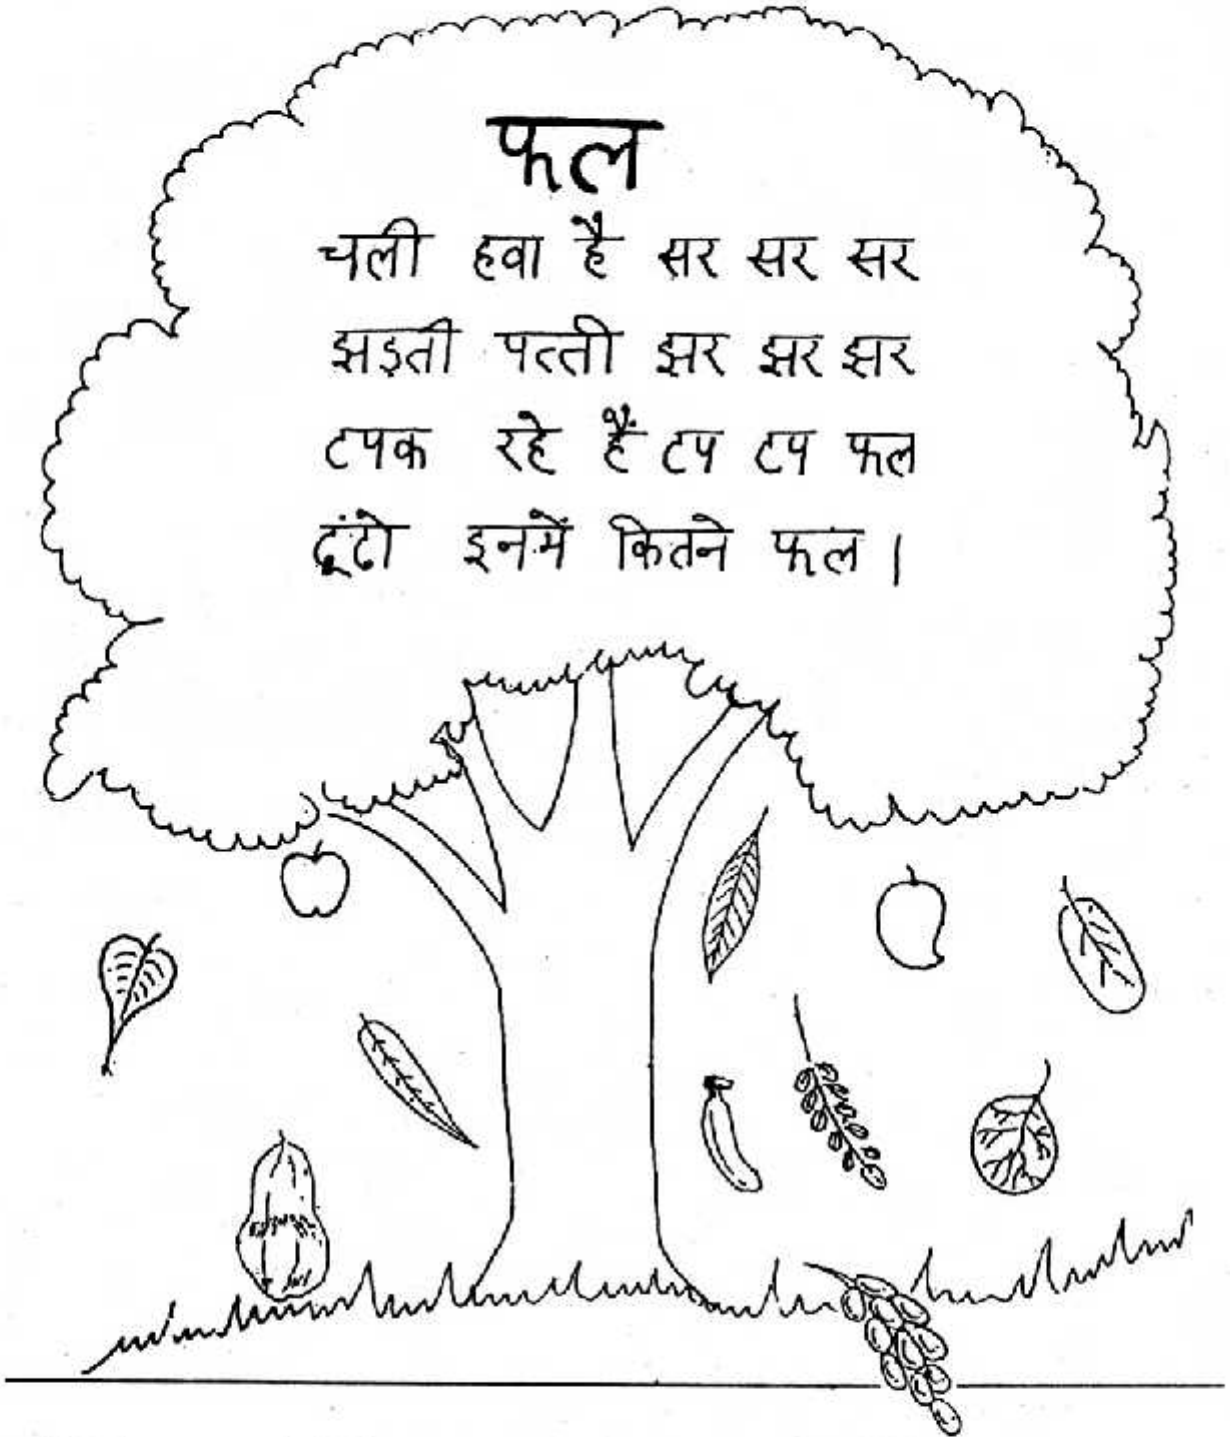 फल
चली हवा है सर सर सर
झड़ती पत्ती झर झर झर
टपक रहे हैं टप टप फल
ढूंढो इनमें कितने फल।